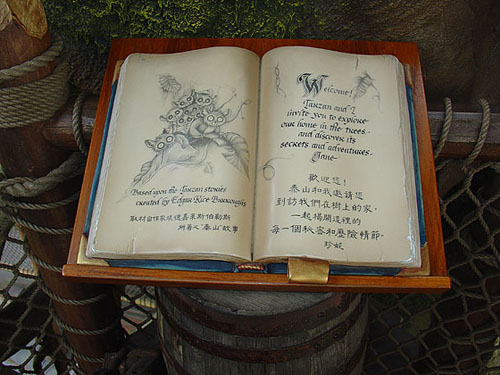 Based upon the Tarzan stories
created by Edgar Rice Burroughs
取材自作家埃德嘉萊斯伯勒斯
所著之"泰山"故事
Welcome!
Tarzan and I
invite you to explore
our home in the trees
and discover its
secrets and adventures.
Jane
歡迎您！
泰山和我邀請您
對訪我們在樹上的家，
一起揭開這裡的
每一個秘密和歷險情節。
珍妮